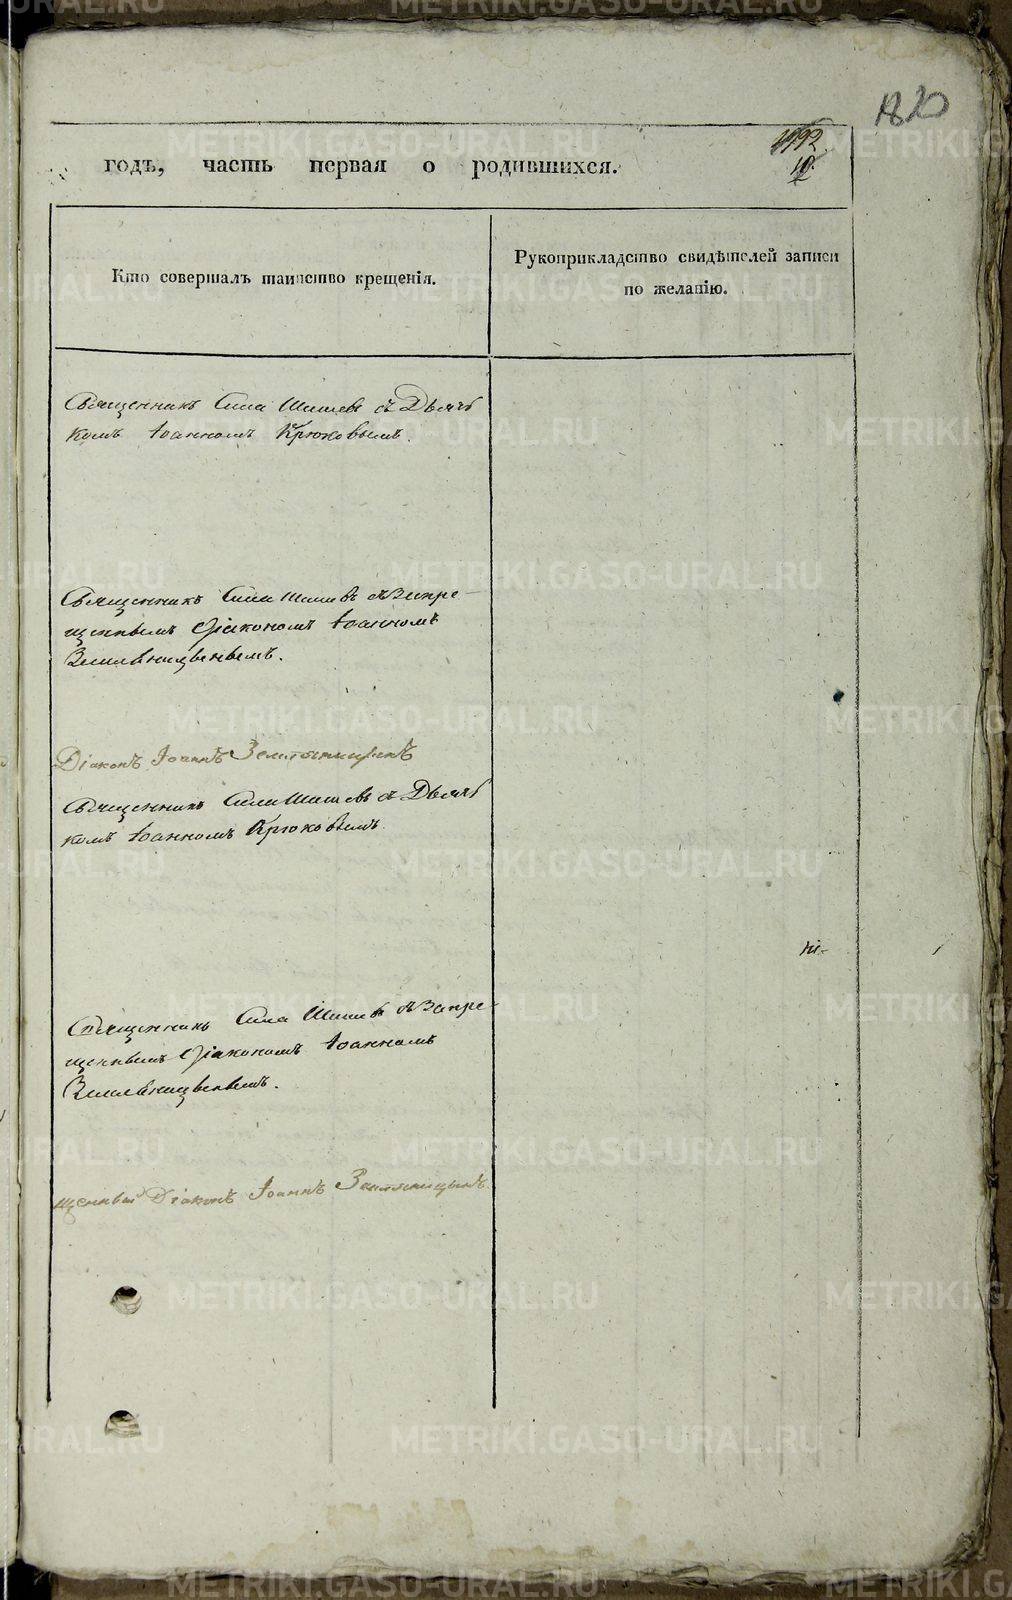 1820
1192
10
годѣ, часть первая о родившихся.
Кто совершалъ таинство крещенія.
Рукоприкладство свидѣтелей записи
по желанію.
Священникъ Сила Шишевъ съ Дьяч
комъ Іоанномъ Крюковымъ.
Священникъ Сила Шишевъ съ Запре-
щеннымъ Діакономъ Іоанномъ
Діаконъ Іоаннъ
Священникъ Сила Шишевъ съ Дьяч
комъ Іоанномъ Крюковымъ.
Священникъ Сила Шишевъ съ Запре-
щеннымъ Діакономъ Іоанномъ
щенный Діаконъ Іоаннъ
METRIKI.GASO-URAL.RU